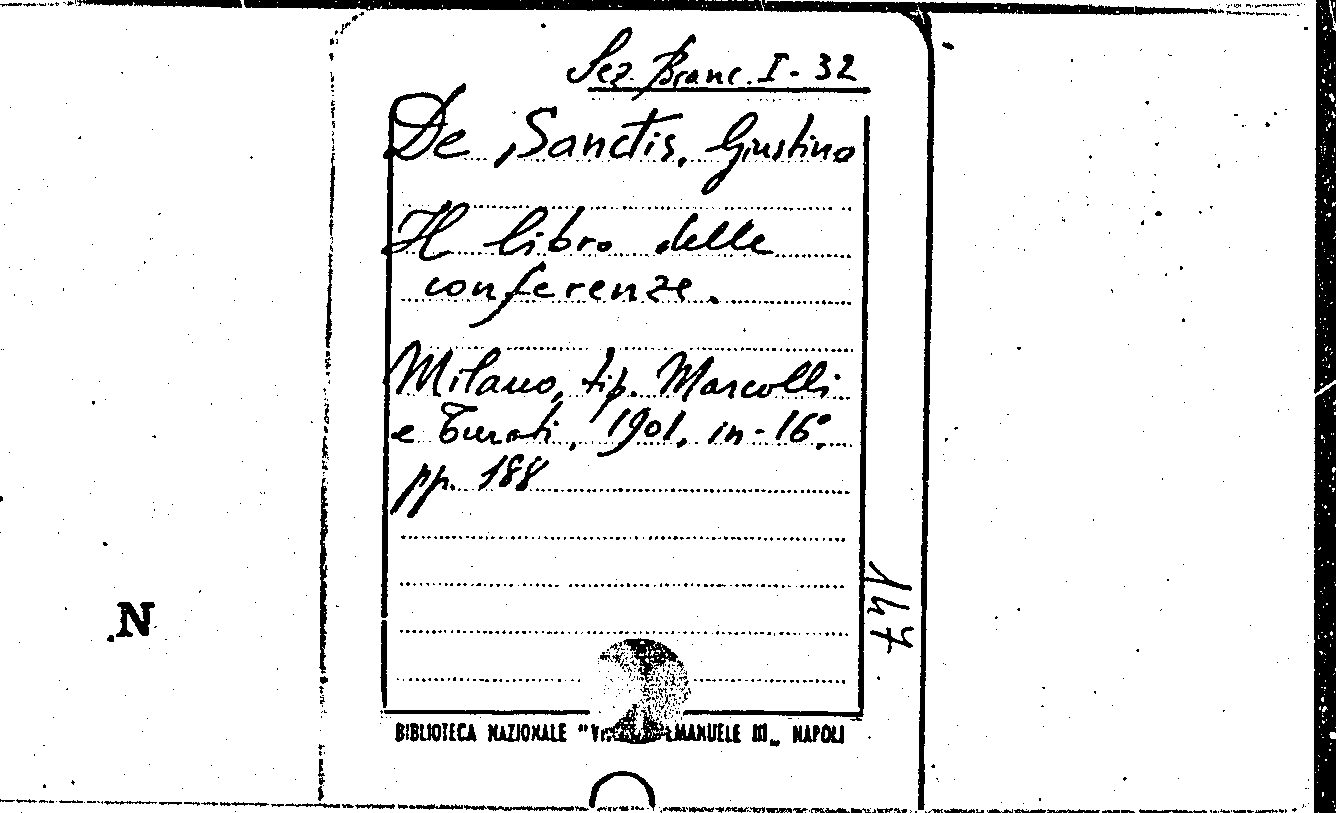 Sez. Branc. I - 32
De Sanctis, Giustino
Il libro delle
conferenze.
Milano, tip. Marcolli
e Turati, 1901, in-16°,
pp. 188
147
N
BIBLIOTECA NAZIONALE "V EMANUELE III„ NAPOLI